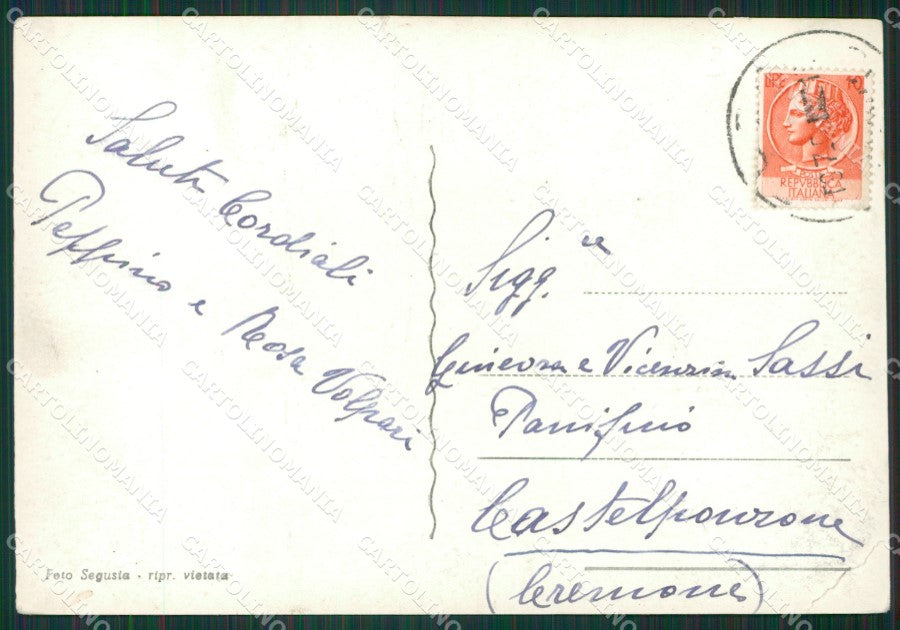 Saluti Cordiali
Peppino e Rosa Volpari
Foto Segusia - ripr. vietata
POSTE
REPVBBLICA
ITALIANA
Sigg.re
Ginevra e Vicenzina Sassi
Panificio
Castelponzone
(Cremona)
CARTOLINOMANIA